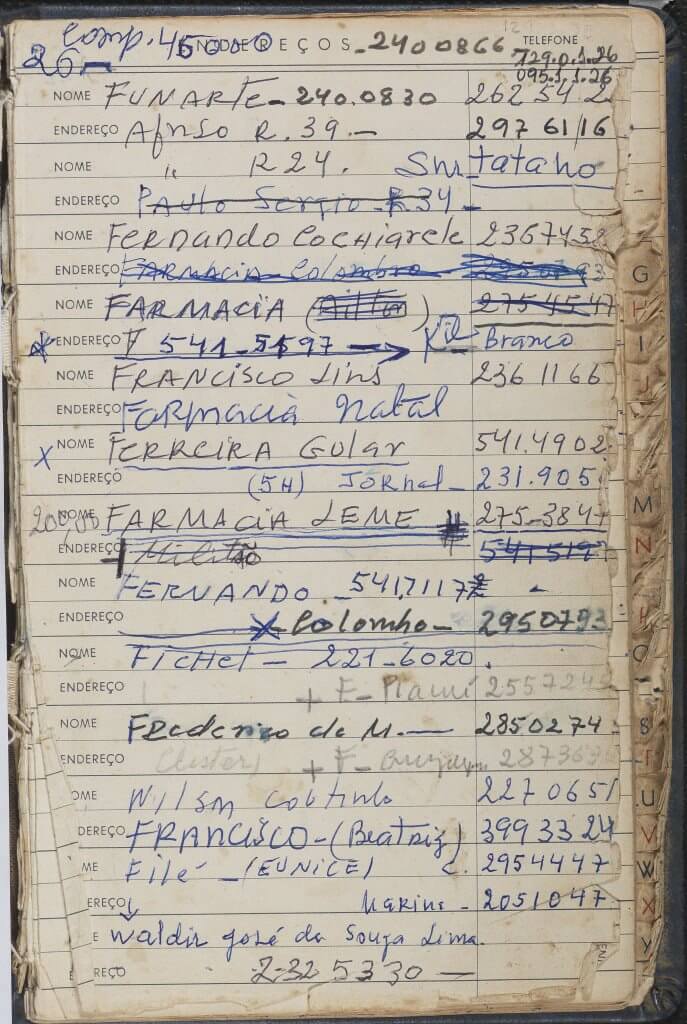 comp. 45000 ENDEREÇOS - 2400866 TELEFONE
26 — 729.0.1.26
095.1.1.26
NOME FUNARTE - 240.0830 262 54 2
ENDEREÇO Afnso R. 39. — 297 61/16
NOME " R 24.
ENDEREÇO Paulo Sergio R34 -
NOME Fernando Cochiarele 2367452
ENDEREÇO FARMACIA Colombro
NOME FARMACIA 2754547
ENDEREÇO 541-5597 → Branco
NOME FRANCISCO Lins 236 11 66
ENDEREÇO FARMACIA Natal
X NOME FERREIRA GULAR 541.4902
ENDEREÇO (5H) JORNAL - 231.905
NOME FARMACIA LEME # 275-3847
ENDEREÇO 541 519
NOME FERNANDO - 541.7117
ENDEREÇO X Colombo - 2950793
NOME FICHET - 221-6020.
ENDEREÇO + F- Piauí
NOME Frederico de M. — 2850274
ENDEREÇO + F-
OME Nilson Coutinho 2270651
DEREÇO FRANCISCO - (Beatriz) 399 33 24
ME Filé - (EUNICE) C. 2954447
EREÇO Marina - 2051047
E Waldir josé da Souza Lima.
REÇO 2-32 5330 —
G
H
I
J
M
N
O
S
T
U
V
W
X
Y